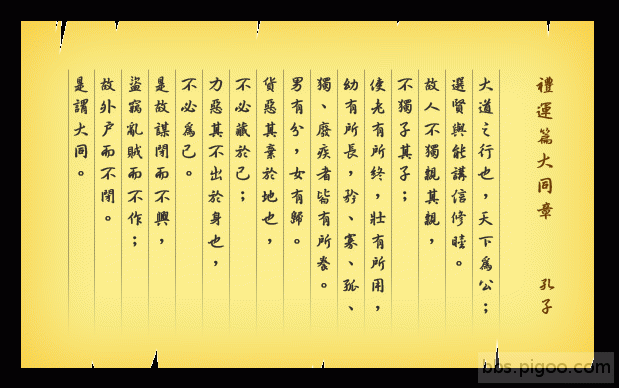 禮運篇大同章 孔子
大道之行也，天下為公；
選賢與能講信修睦。
故人不獨親其親，
不獨子其子；
使老有所終，壯有所用，
幼有所長，矜、寡、孤、
獨、廢疾者皆有所養。
男有分，女有歸。
貨惡其棄於地也，
不必藏於己；
力惡其不出於身也，
不必為己。
是故謀閉而不興，
盜竊亂賊而不作；
故外戶而不閉。
是謂大同。
bbs.pigoo.com